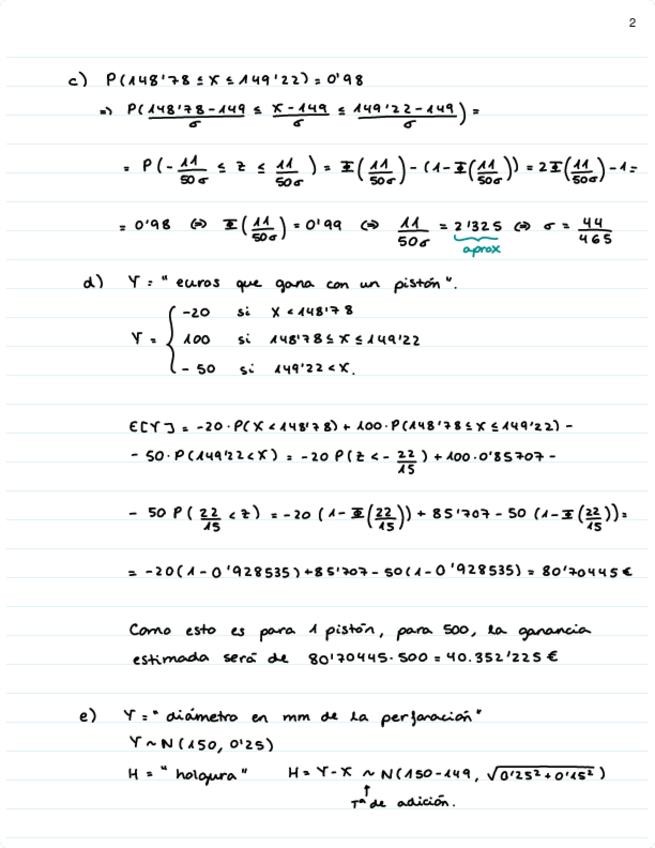 2
c) P(148'78 ≤ X ≤ 149'22) = 0'98
⇒ P((148'78-149)/σ ≤ (X-149)/σ ≤ (149'22-149)/σ) =
= P(-11/50σ ≤ Z ≤ 11/50σ) = Φ(11/50σ) - (1-Φ(11/50σ)) = 2Φ(11/50σ) - 1 =
= 0'98 ⇔ Φ(11/50σ) = 0'99 ⇔ 11/50σ = 2'325 ⇔ σ = 44/465
aprox
d) Y = "euros que gana con un pistón".
-20 si X < 148'78
Y = { 100 si 148'78 ≤ X ≤ 149'22
-50 si 149'22 < X.
E[Y] = -20·P(X < 148'78) + 100·P(148'78 ≤ X ≤ 149'22) -
- 50·P(149'22 < X) = -20 P(Z < -22/15) + 100·0'85707 -
- 50 P(22/15 < Z) = -20 (1-Φ(22/15)) + 85'707 - 50 (1-Φ(22/15)) =
= -20(1-0'928535) + 85'707 - 50(1-0'928535) = 80'70445 €
Como esto es para 1 pistón, para 500, la ganancia
estimada será de 80'70445·500 = 40.352'225 €
e) Y = "diámetro en mm de la perforación"
Y ~ N(150, 0'25)
H = "holgura" H = Y-X ~ N(150-149, √(0'25² + 0'15²))
↑
Tª de adición.